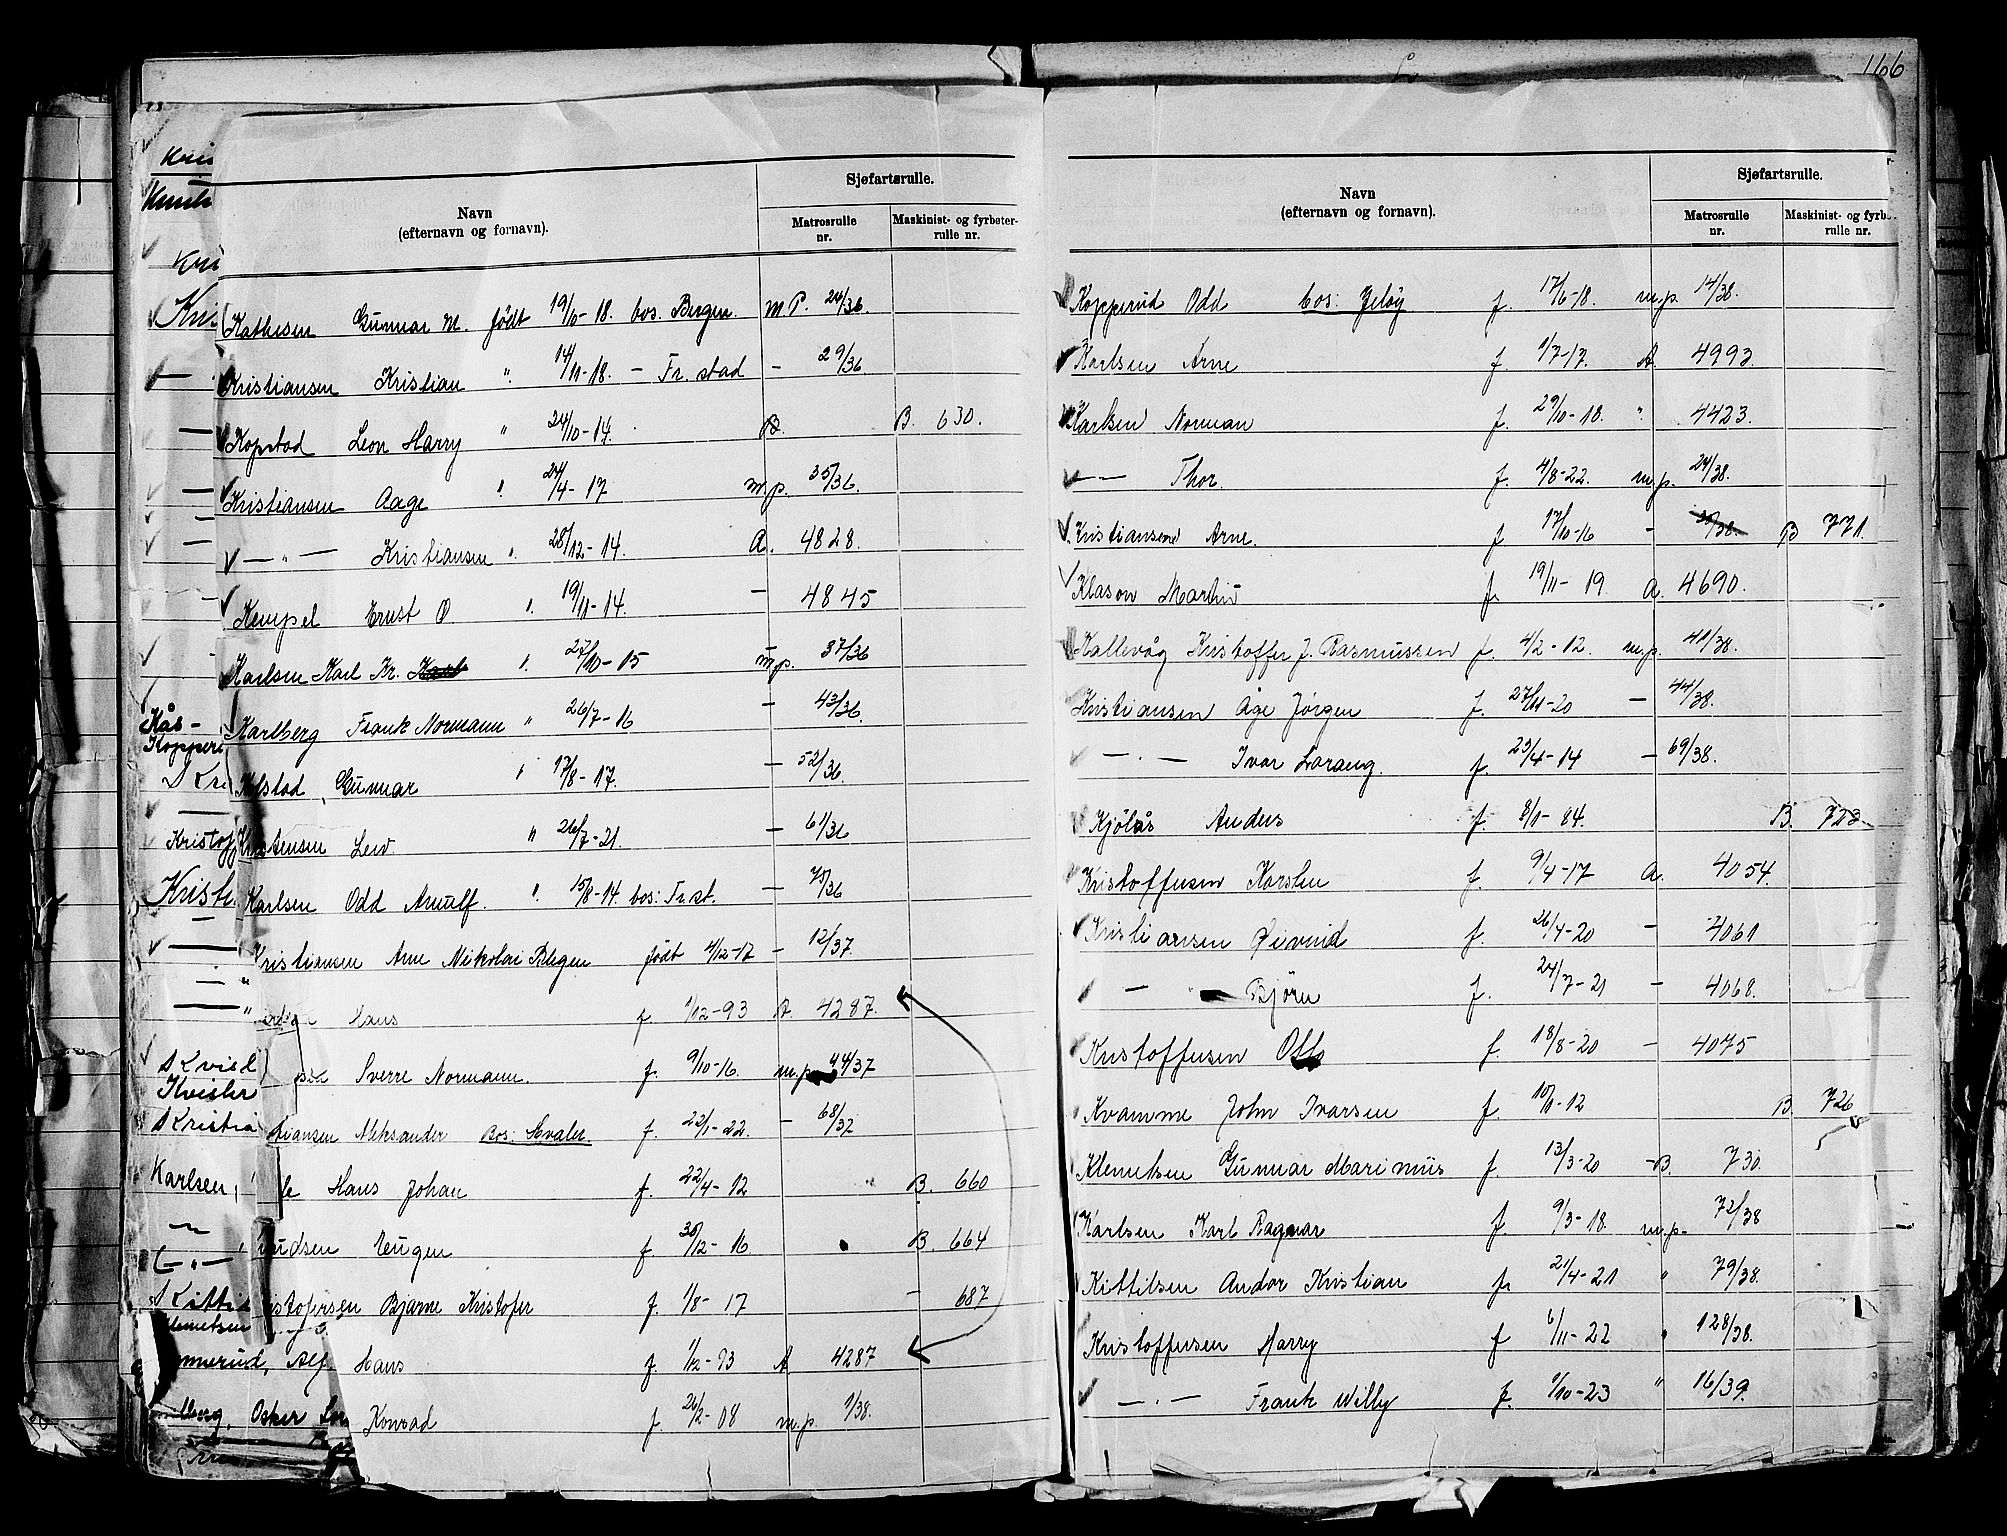 166
Kri
Navn
(efternavn og fornavn).
Sjøfartsrulle.
Matrosrulle nr.
Maskinist- og fyrbøter-rulle nr.
Kathesen Gunnar M. født 19/10-18. bos. Bergen. m P. 24/36
Kristiansen Kristian " 14/11-18. - Fr.stad - 29/36
Kopstad Leon Harry " 24/10-14. B. 630.
Kristiansen Aage " 24/4-17 m.p. 35/36
— " — Kristiansen " 28/12-14. A. 4828
Kempel Ernst O " 19/11-14. - 4845
Karlsen Karl Kr. Karl " 27/10-05 m.p. 37/36
Karlberg Frank Normann " 26/7-16 - 43/36
Kolstad, Gunnar " 17/8-17. - 52/36
Kristensen Leiv " 26/7-21. - 61/36
Karlsen Odd Arnulf. " 15/8-14. bos: Fr.st. - 71/36
Kristiansen Arne Nikolai Blegen født 4/12-17 - 12/37
Hans f. 1/12-93 A. 4287.
Sverre Normann. f. 9/10-16. m.p. 44/37
tiansen Aleksander Bos: Hvaler. f. 23/1-22. - 68/37
le Hans Johan f. 22/4-12 B. 660
udsen Eugen f 30/12-16 B. 664
istofersen Bjarne Kristofer f. 1/8-17 - 687
Hans f. 1/12-93 A 4287
Konrad f 26/2-08 m.p. 1/38.
Kås-
Kopper
Kri
Kristof
Kriste
Kvisler
Kristia
Karlsen,
Kittil
nnerud, Alf
lberg, Oskar
Navn
(efternavn og fornavn).
Sjøfartsrulle.
Matrosrulle nr.
Maskinist- og fyrbø
rulle nr.
Kopperud Odd bos: Jeløy f. 17/6-18. m.p. 14/38.
Karlsen Arne f 1/7-17. A. 4993.
Karlsen Norman f. 29/10-18. " 4423.
— Thor. f. 4/8-22. m.p. 24/38.
Kristiansen Arne. f 17/10-16 - 30/38. B 771.
Klason Martin f. 19/11-19. A. 4690.
Kallevåg Kristoffer J. Rasmussen f. 4/2-12. m.p. 41/38.
Kristiansen Åge Jørgen f. 27/11-20 - 44/38.
— . — Ivar Lorang. f. 23/4-14 - 69/38.
Kjølås Anders f. 8/1-84. B. 723.
Kristoffersen Karsten f. 9/4-17 A. 4054.
Kristiansen Øivind f. 26/4-20 - 4061
— " Bjørn f. 24/7-21 - 4068.
Kristoffersen Otto f. 18/8-20 - 4075
Kvamme John Ivarsen f 10/11-12 B 726
Klemetsen Gunnar Marimius f 13/3-20 - B. 730.
Karlsen Karl Ragnar f. 9/3-18. m.p. 72/38
Kittilsen Andor Kristian f. 21/4-21 " 79/38.
Kristoffersen Harry f 6/11-22 " 128/38.
— . — Frank Willy f. 1/10-23 " 16/39.